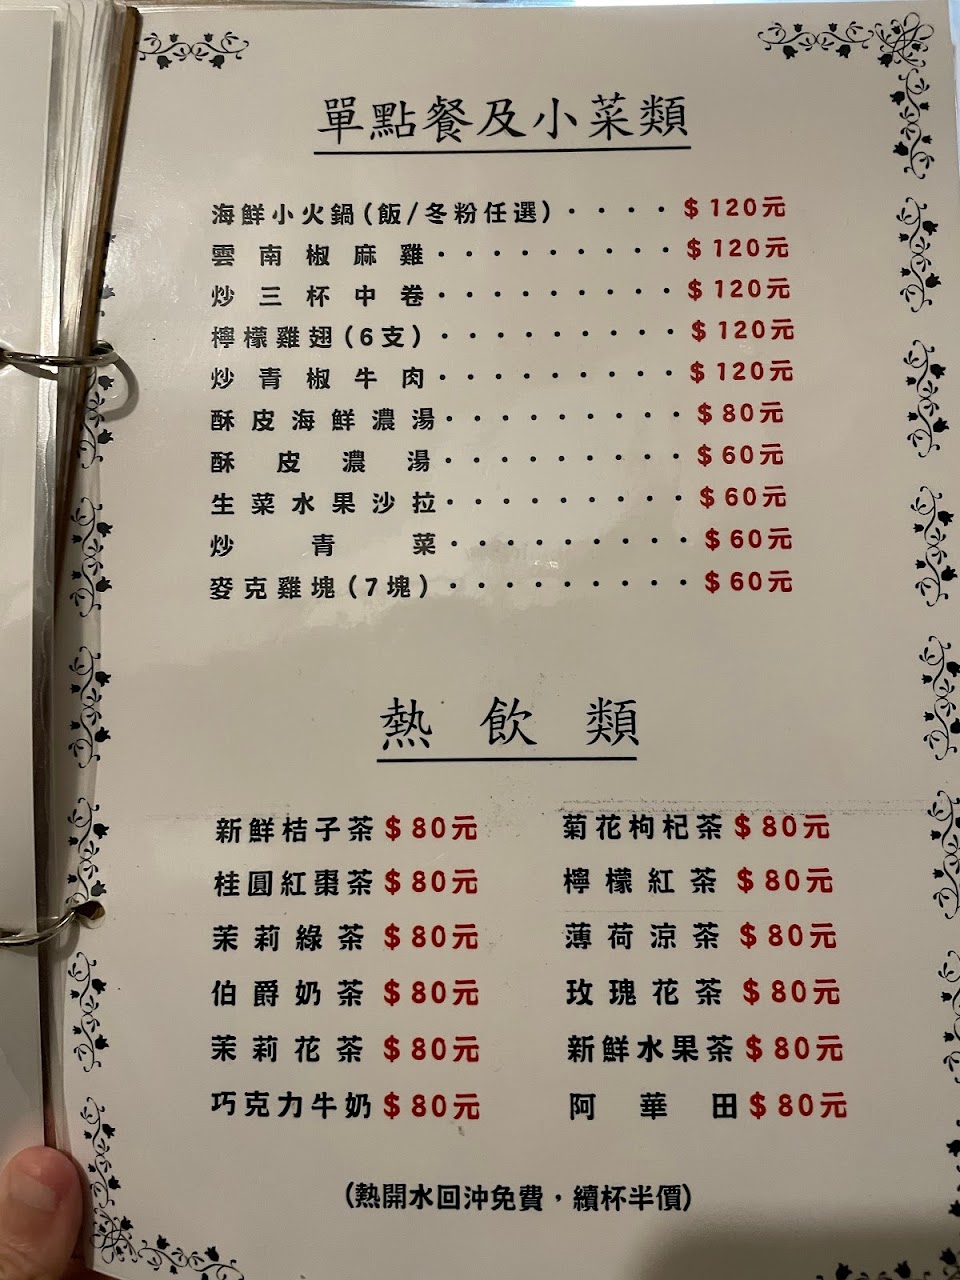 單點餐及小菜類
海鮮小火鍋(飯/冬粉任選)····$120元
雲南椒麻雞·········$120元
炒三杯中卷·········$120元
檸檬雞翅(6支)·········$120元
炒青椒牛肉·········$120元
酥皮海鮮濃湯·········$80元
酥皮濃湯·········$60元
生菜水果沙拉·········$60元
炒青菜·········$60元
麥克雞塊(7塊)·········$60元
熱飲類
新鮮桔子茶$80元 菊花枸杞茶$80元
桂圓紅棗茶$80元 檸檬紅茶$80元
茉莉綠茶$80元 薄荷涼茶$80元
伯爵奶茶$80元 玫瑰花茶$80元
茉莉花茶$80元 新鮮水果茶$80元
巧克力牛奶$80元 阿華田$80元
(熱開水回沖免費，續杯半價)